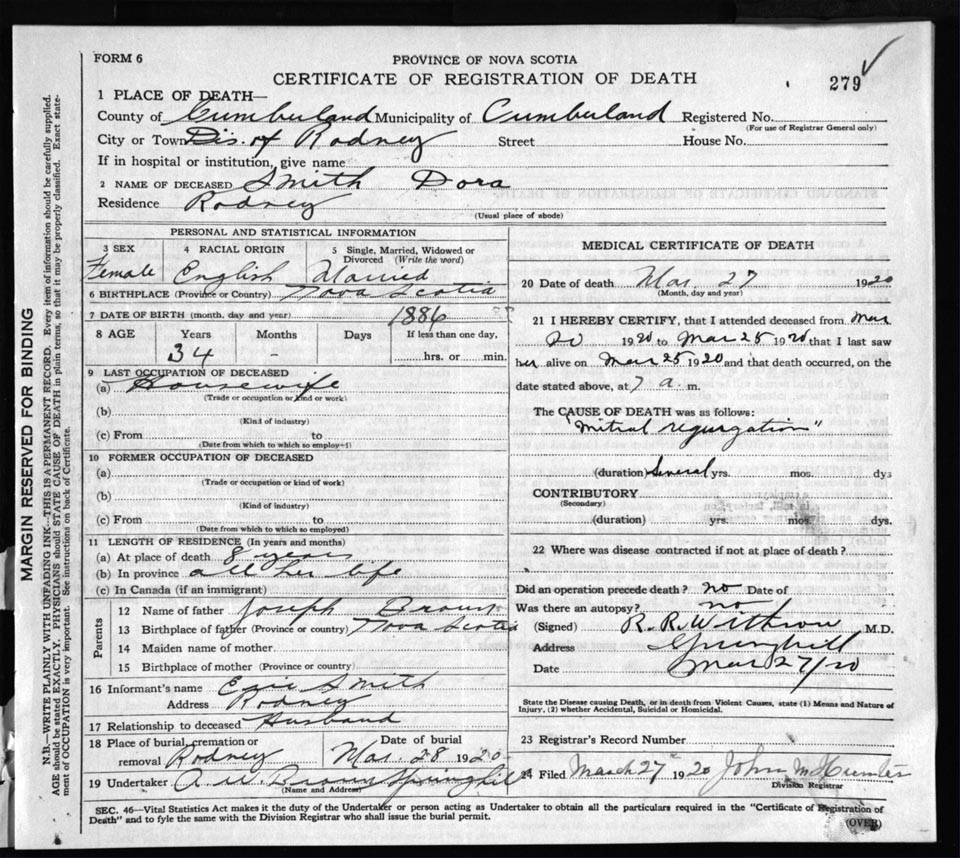 FORM 6
PROVINCE OF NOVA SCOTIA
CERTIFICATE OF REGISTRATION OF DEATH
279
1 PLACE OF DEATH—
County of Cumberland Municipality of Cumberland Registered No.
(For use of Registrar General only)
City or Town Dis. of Rodney Street House No.
If in hospital or institution, give name
2 NAME OF DECEASED Smith Dora
Residence Rodney
(Usual place of abode)
PERSONAL AND STATISTICAL INFORMATION
3 SEX 4 RACIAL ORIGIN 5 Single, Married, Widowed or Divorced (Write the word)
Female English Married
6 BIRTHPLACE (Province or Country) Nova Scotia
7 DATE OF BIRTH (month, day and year) 1886
8 AGE Years Months Days If less than one day,
34 - hrs. or min.
9 LAST OCCUPATION OF DECEASED
(a) Housewife
(Trade or occupation or kind or work)
(b)
(Kind of industry)
(c) From to
(Date from which to which so employed)
10 FORMER OCCUPATION OF DECEASED
(a)
(Trade or occupation or kind of work)
(b)
(Kind of industry)
(c) From to
(Date from which to which so employed)
11 LENGTH OF RESIDENCE (In years and months)
(a) At place of death 8 years
(b) In province all her life
(c) In Canada (if an immigrant)
Parents
12 Name of father Joseph Brown
13 Birthplace of father (Province or country) Nova Scotia
14 Maiden name of mother
15 Birthplace of mother (Province or country)
16 Informant's name Smith
Address Rodney
17 Relationship to deceased Husband
18 Place of burial, cremation or removal Rodney Date of burial Mar. 28 1920
19 Undertaker A. W. Brown Springhill
(Name and Address)
MEDICAL CERTIFICATE OF DEATH
20 Date of death Mar. 27 1920
(Month, day and year)
21 I HEREBY CERTIFY, that I attended deceased from Mar
20 1920 to Mar 25 1920 that I last saw
her alive on Mar 25 1920 and that death occurred, on the
date stated above, at 7 a. m.
The CAUSE OF DEATH was as follows:
"Mitial regurgation"
(duration) Several yrs. mos. dys
CONTRIBUTORY
(Secondary)
(duration) yrs. mos. dys.
22 Where was disease contracted if not at place of death?
Did an operation precede death? no Date of
Was there an autopsy? no
(Signed) R. R. Withrow M.D.
Address Springhill
Date Mar 27/20
State the Disease causing Death, or in death from Violent Causes, state (1) Means and Nature of
Injury, (2) whether Accidental, Suicidal or Homicidal.
23 Registrar's Record Number
24 Filed March 27th 1920 John M Hunter
Division Registrar
SEC. 46—Vital Statistics Act makes it the duty of the Undertaker or person acting as Undertaker to obtain all the particulars required in the "Certificate of Registration of
Death" and to fyle the same with the Division Registrar who shall issue the burial permit.
(OVER)
MARGIN RESERVED FOR BINDING
N.B.—WRITE PLAINLY WITH UNFADING INK—THIS IS A PERMANENT RECORD. Every item of information should be carefully supplied.
AGE should be stated EXACTLY. PHYSICIANS should STATE CAUSE OF DEATH in plain terms, so that it may be properly classified. Exact state-
ment of OCCUPATION is very important. See instructions on back of Certificate.